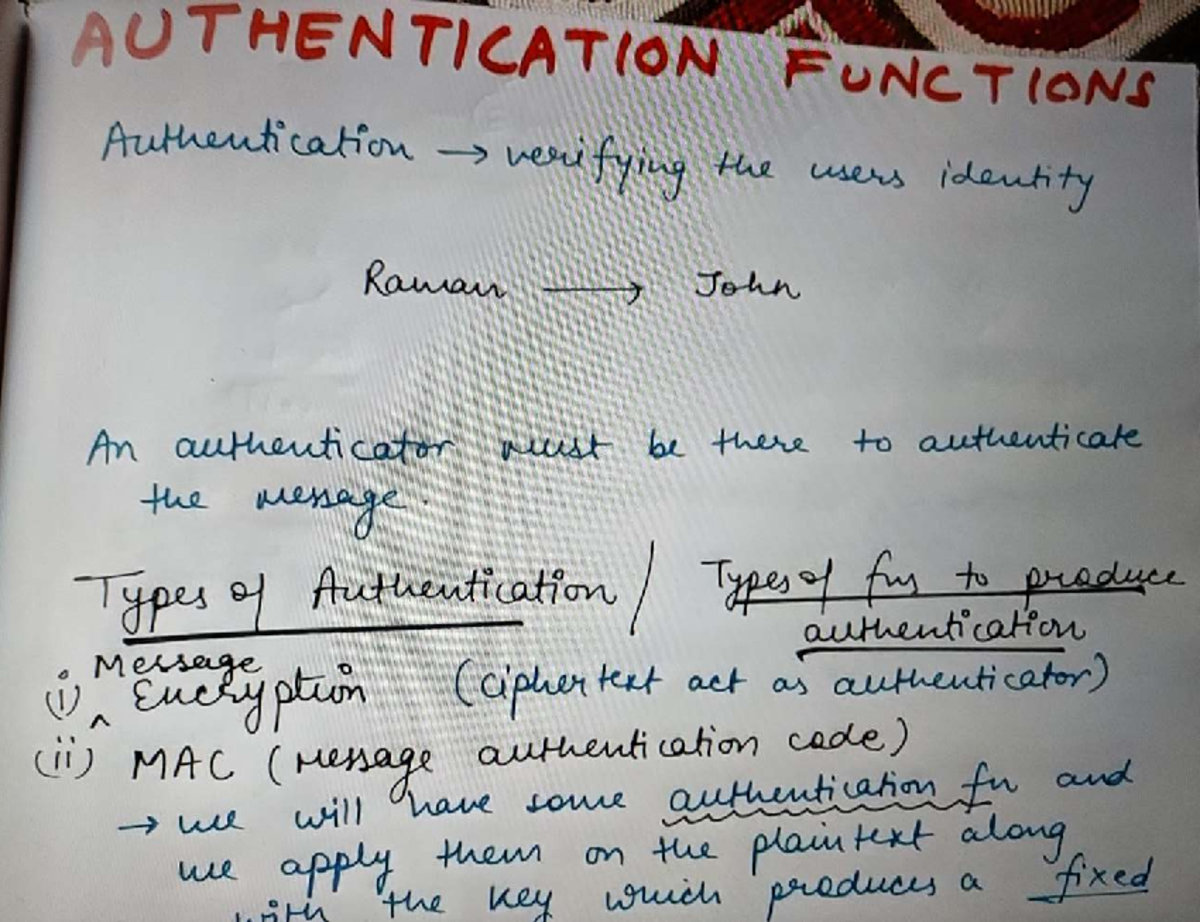 AUTHENTICATION FUNCTIONS
Authentication → verifying the users identity
Raman → John
An authenticator must be there to authenticate
the message.
Types of Authentication / Types of fns to produce
authentication
Message
(i) ^ Encryption (ciphertext act as authenticator)
(ii) MAC (message authentication code)
→ we will have some authentication fn and
we apply them on the plaintext along
with the key which produces a fixed